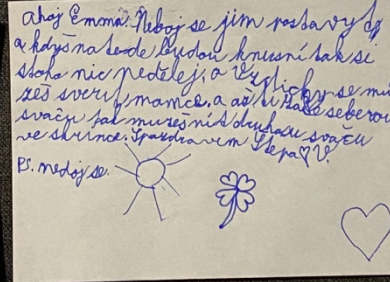 Ahoj Emma. Neboj se jim postavyt
a kdyš na tebe budou hnusní tak si
s toho nic neďelej, a vždicky se mů
žeš sveryt mamce. a ať si klidně seberou
svaču tak můžeš níst druhou svaču
ve skříňce. S pozdravem Štepa V.
PS. neboj se.